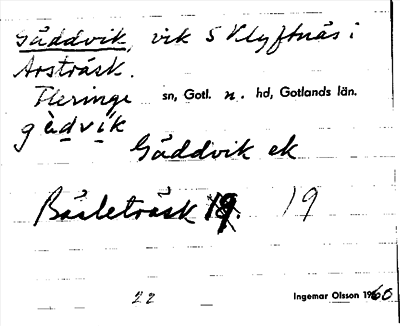 Gåddvik, vik S Klyftnäs i
Arsträsk.
Fleringe sn, Gotl. n. hd, Gotlands län.
gàdvík
Gåddvik ek
Bästeträsk 19. 19
22
Ingemar Olsson 1960